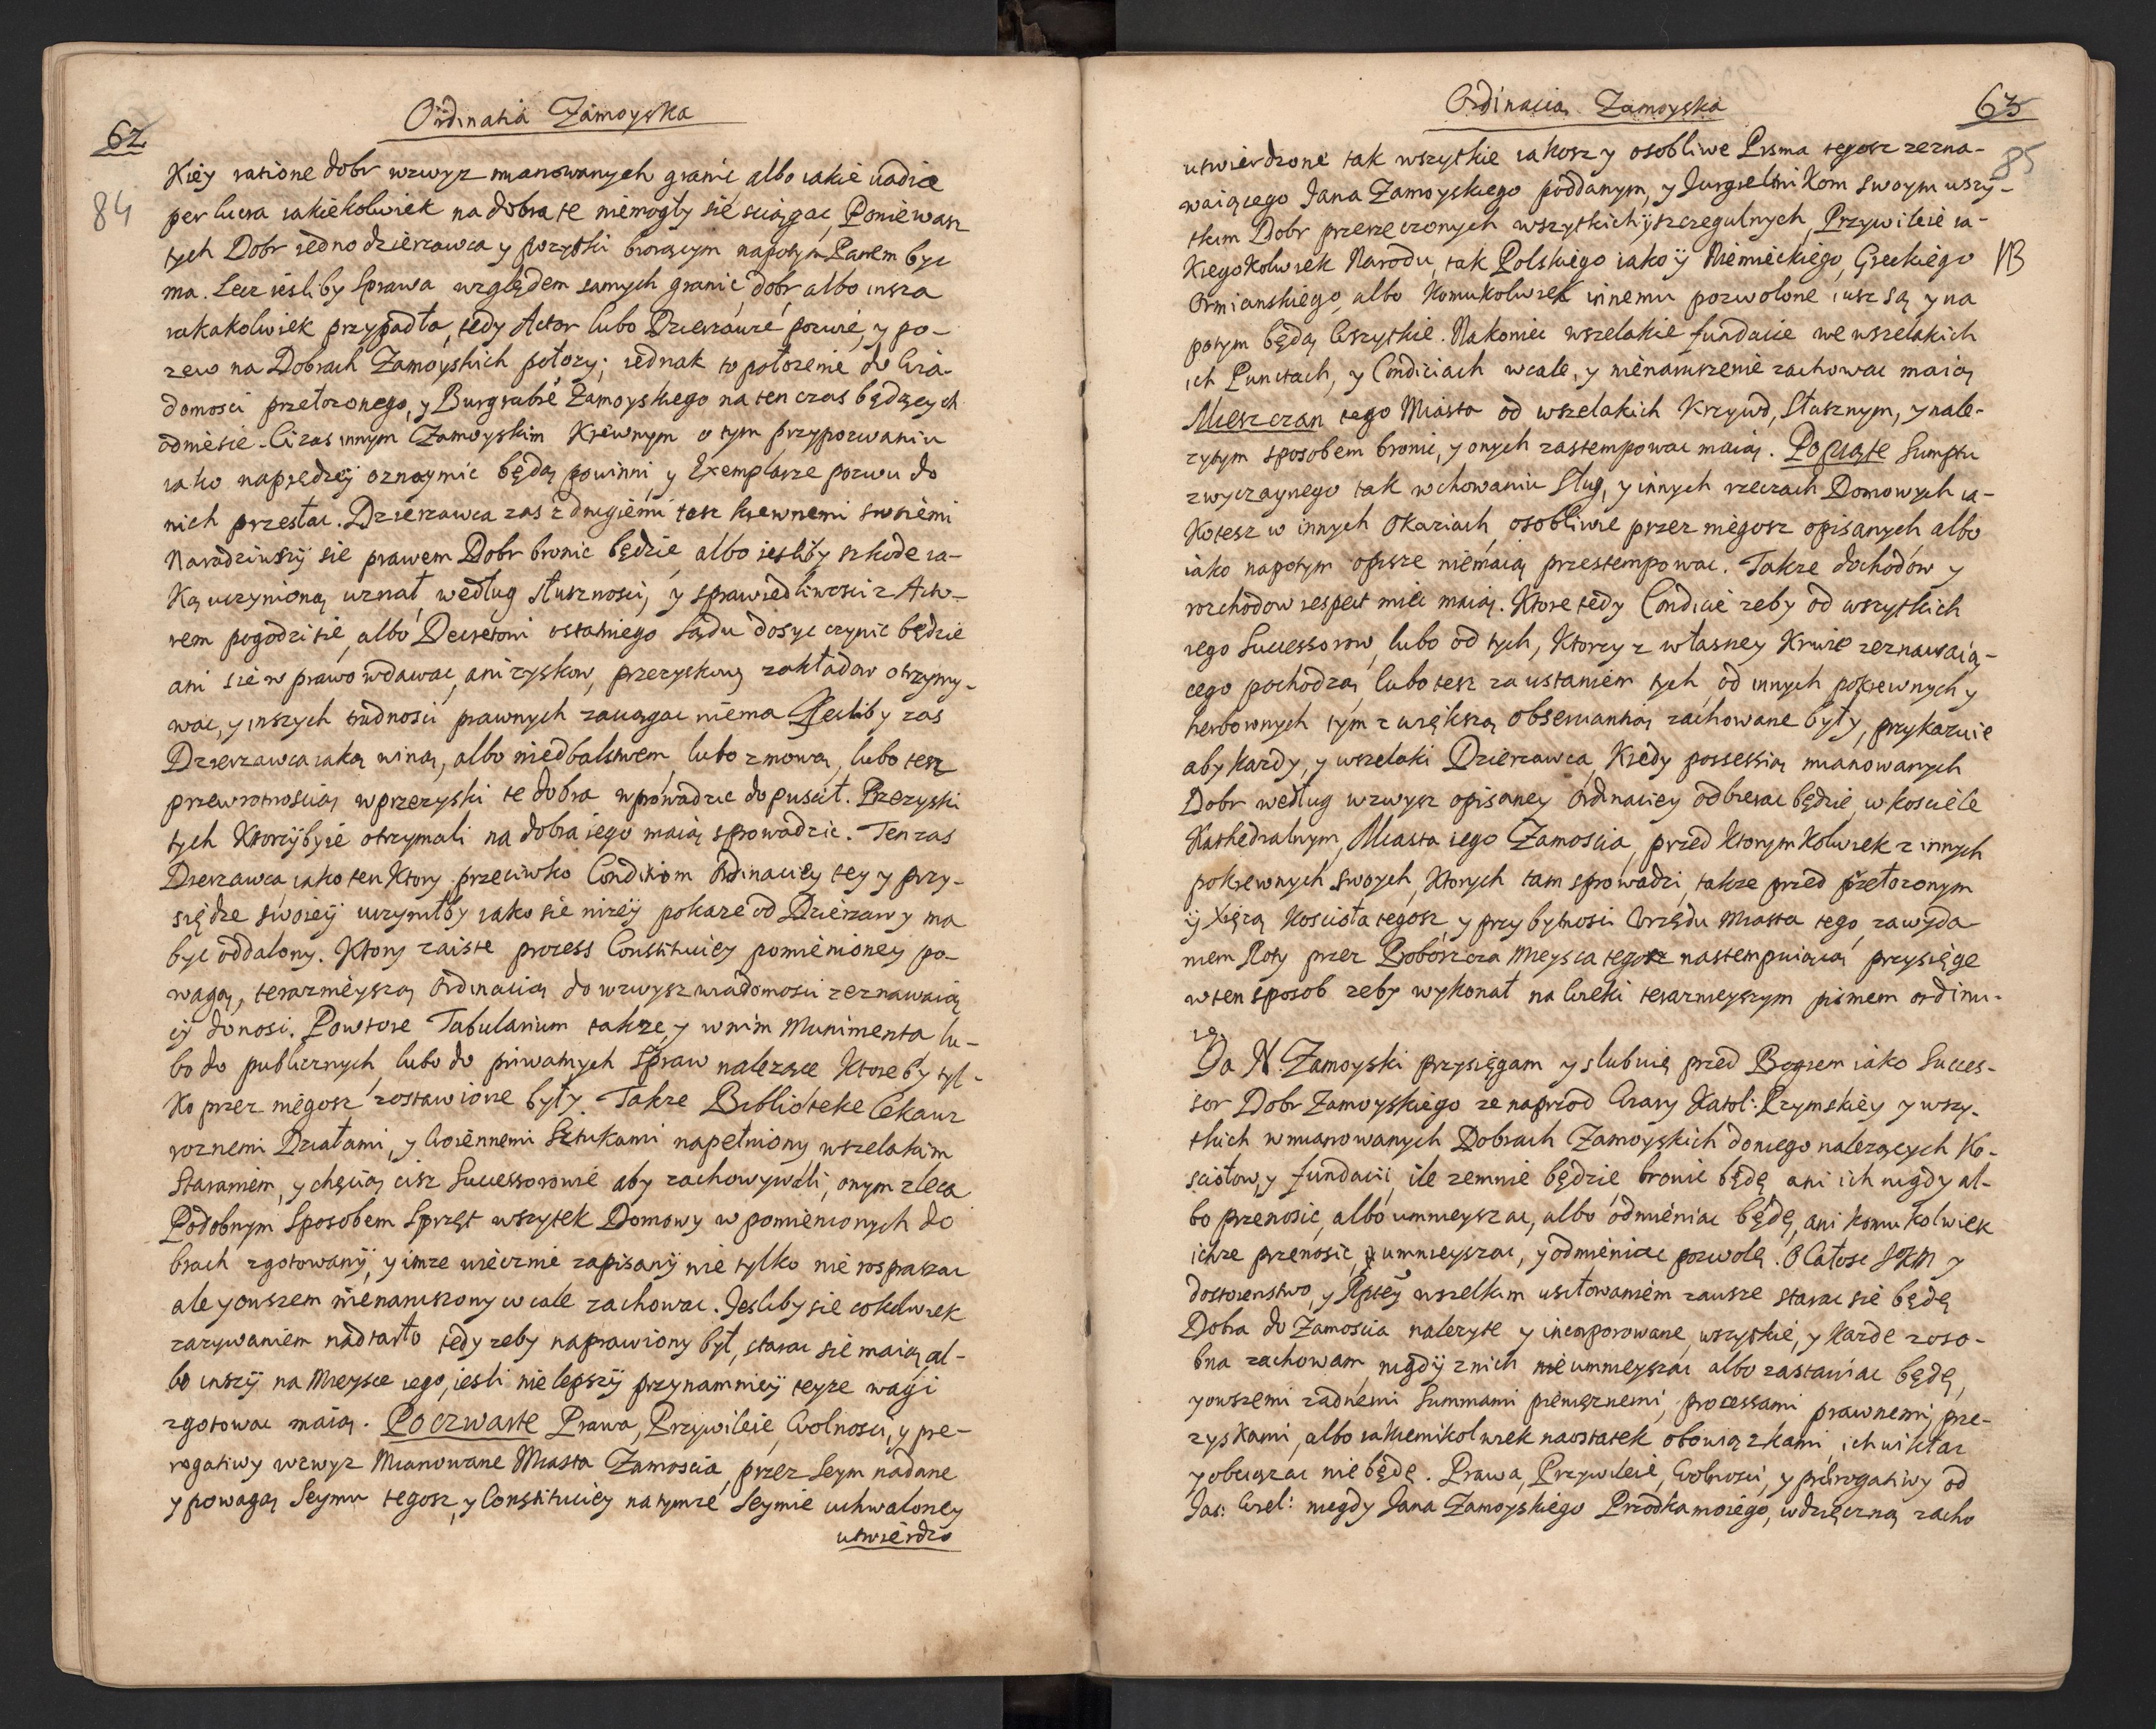 Ordinatia Zamoyska
62
84
Kiey ratione dobr wzwyz mianowanych granic albo iakie vadia
per lucra iakiekolwiek na dobra te niemogły się sciągac, Poniewasz
tych Dobr iedno dzierzawca y pozytki biorącym napotym Panem byc
ma. Lecz iesliby Sprawa względem samych granic, dobr, albo insza
iakakolwiek przypadła, tedy Actor lubo Dzierzawce pozwie, y po-
zew na Dobrach Zamoyskich połozy; iednak to połozenie do Wia-
domosci przełozonego, y Burgrabie Zamoyskiego na ten czas będących
odniesie. Ci zas innym Zamoyskim Krewnym o tym przypozwaniu
iako naprędzey oznaymic będą powinni y Exemplarze pozwu do
nich przesłac. Dzierzawca zas z drugiemi tesz krewnemi swoiemi
Naradziwszy sie prawem Dobr bronic będzie, albo iesliby szkode ia-
Ką uczynioną uznał, według słusznosci, y sprawiedliwosci z Acto-
rem pogodzi sie, albo Decretowi ostatniego Sądu dosyc czynic będzie
ani sie w prawo wdawac, ani zyskow, przezyskow, zakładow otrzymy-
wac, y inszych trudnosci prawnych zaciągac niema. Jesliby zas
Dzierzawca iaką winą, albo niedbalstwem, lubo zmową, lubo tesz
przewrotnoscią w przezyski te dobra wprowadzic dopuscił. Przezyski
tych Ktorzyby ie otrzymali na dobra iego maią sprowadzic. Ten zas
Dzierzawca iako ten Ktory przeciwko Conditiom Ordinaciey tey y przy-
siędze swoiey uczyniłby iako sie nizey pokaze od Dzierzawy ma
byc oddalony. Ktory zaiste process Constituciey pomienioney po-
wagą, terazmeyszą Ordinacią do wzwysz wiadomosci zeznawaią
iy donosi. Powtore Tabularium takze, y w nim Munimenta lu-
bo do publicznych, lubo do priwatnych Spraw nalezące Ktoreby tyl-
ko przez niegosz zostawione były. Takze Biblioteke Cekauz
roznemi Działami, y Woiennemi Sztukami napełniony wszelakim
Staraniem, y chęcią cisz Successorowie aby zachowywali, onym zleca
Podobnym Sposobem Sprzęt wszytek Domowy w pomienionych do
brach zgotowany, y imze wiecznie zapisany nie tylko nie rospraszac
ale y owszem nienaruszony wcale zachowac. Jesliby sie cokolwiek
zazywaniem nadtarło tedy zeby naprawiony był, starac sie maią, al-
bo inszy na Mieysce iego, iesli nie lepszy przynamniey teyze wagi
zgotowac maią. Poczwarte Prawa, Przywileie, Wolnosci, y pre-
rogatiwy wzwyz Mianowane Miasta Zamoscia, przez Seym nadane
y powagą Seymu tegosz, y Constituciey na tymze Seymie uchwaloney
utwierdzo
Ordinacia Zamoyska
63
85
utwierdzone tak wszytkie iakosz y osobliwe Pisma tegosz zezna-
waiącego Jana Zamoyskiego poddanym, y Jurgieltnikom swoym wszy-
tkim Dobr przerzeczonych wszytkich y szczegulnych, Przywileie ia-
Kiegokolwiek Narodu, tak Polskiego iako y Niemieckiego, Greckiego
NB
Ormianskiego, albo Komukolwiek innemu pozwolone iusz są y na
potym będą Wszytkie. Nakoniec wszelakie fundacie we wszelakich
ich Punctach, y Condiciach wcale, y nienaruszenie zachowac maią
Mieszczan tego Miasta od wszelakich Krzywd, Słusznym, y nale-
zytym sposobem bronic, y onych zastempowac maią. Popiąte Sumptu
zwyczaynego tak w chowaniu Sług, y innych rzeczach Domowych ia-
Kotesz w innych Okaziach, osobliwie przez niegosz opisanych, albo
iako napotym opisze niemaią przestempowac. Takze dochodow y
rozchodow respect miec maią. Ktore tedy Condicie zeby od wszytkich
iego Successorow, lubo od tych, Ktorzy z własney Krwie zeznawaią-
cego pochodzą, lubo tesz za ustaniem tych, od innych pokrewnych y
herbownych tym z większą observantią zachowane były, przykazuie
aby kazdy, y wszelaki Dzierzawca, Kiedy possessią mianowanych
Dobr według wzwysz opisaney Ordinaciey odbierac będzie, w kosciele
Kathedralnym, Miasta iego Zamoscia, przed Ktorymkolwiek z innych
pokrewnych swoych, Ktorych tam sprowadzi, takze przed przełozonym
y Xięzą Kosciola tegosz, y przy bytnosci Urzędu Miasta tego, za wyda
niem Roty przez Proboszcza Mieysca tegosz nastempuiącą przysięge
w ten sposob zeby wykonał na Wieki terazmeyszym pismem ordinu-
ie.
Ja N. Zamoyski przysięgam y slubuię przed Bogiem iako Succes-
sor Dobr Zamoyskiego ze naprzod Wiary Katol: Rzymskiey y wszy-
tkich w mianowanych Dobrach Zamoyskich do niego nalezących Ko-
sciołow, y fundacii, ile zemnie będzie, bronic będę ani ich nigdy al-
bo przenosic, albo umnieyszac, albo odmieniac będę, ani komukolwiek
ichze przenosic, y umnieyszac, y odmieniac pozwolę. O Całosc JKM y
dostoienstwo, y Rptey wszelkim usiłowaniem zawsze starac sie będę
Dobra do Zamoscia nalezyte y incorporowane, wszytkie, y Kazde zoso-
bna zachowam, nigdy z nich nie umnieyszac albo zastawiac będę,
y owszemi zadnemi Summami pienięznemi, processami prawnemi, prze-
zyskami, albo iakiemikolwiek naostatek obowiązkami, ich wikłac
y obciązac nie będę. Prawa, Przywileie, Wolnosci, y prerogatiwy od
Jas: Wiel: niegdy Jana Zamoyskiego Przodka moiego, wdzięczną zacho